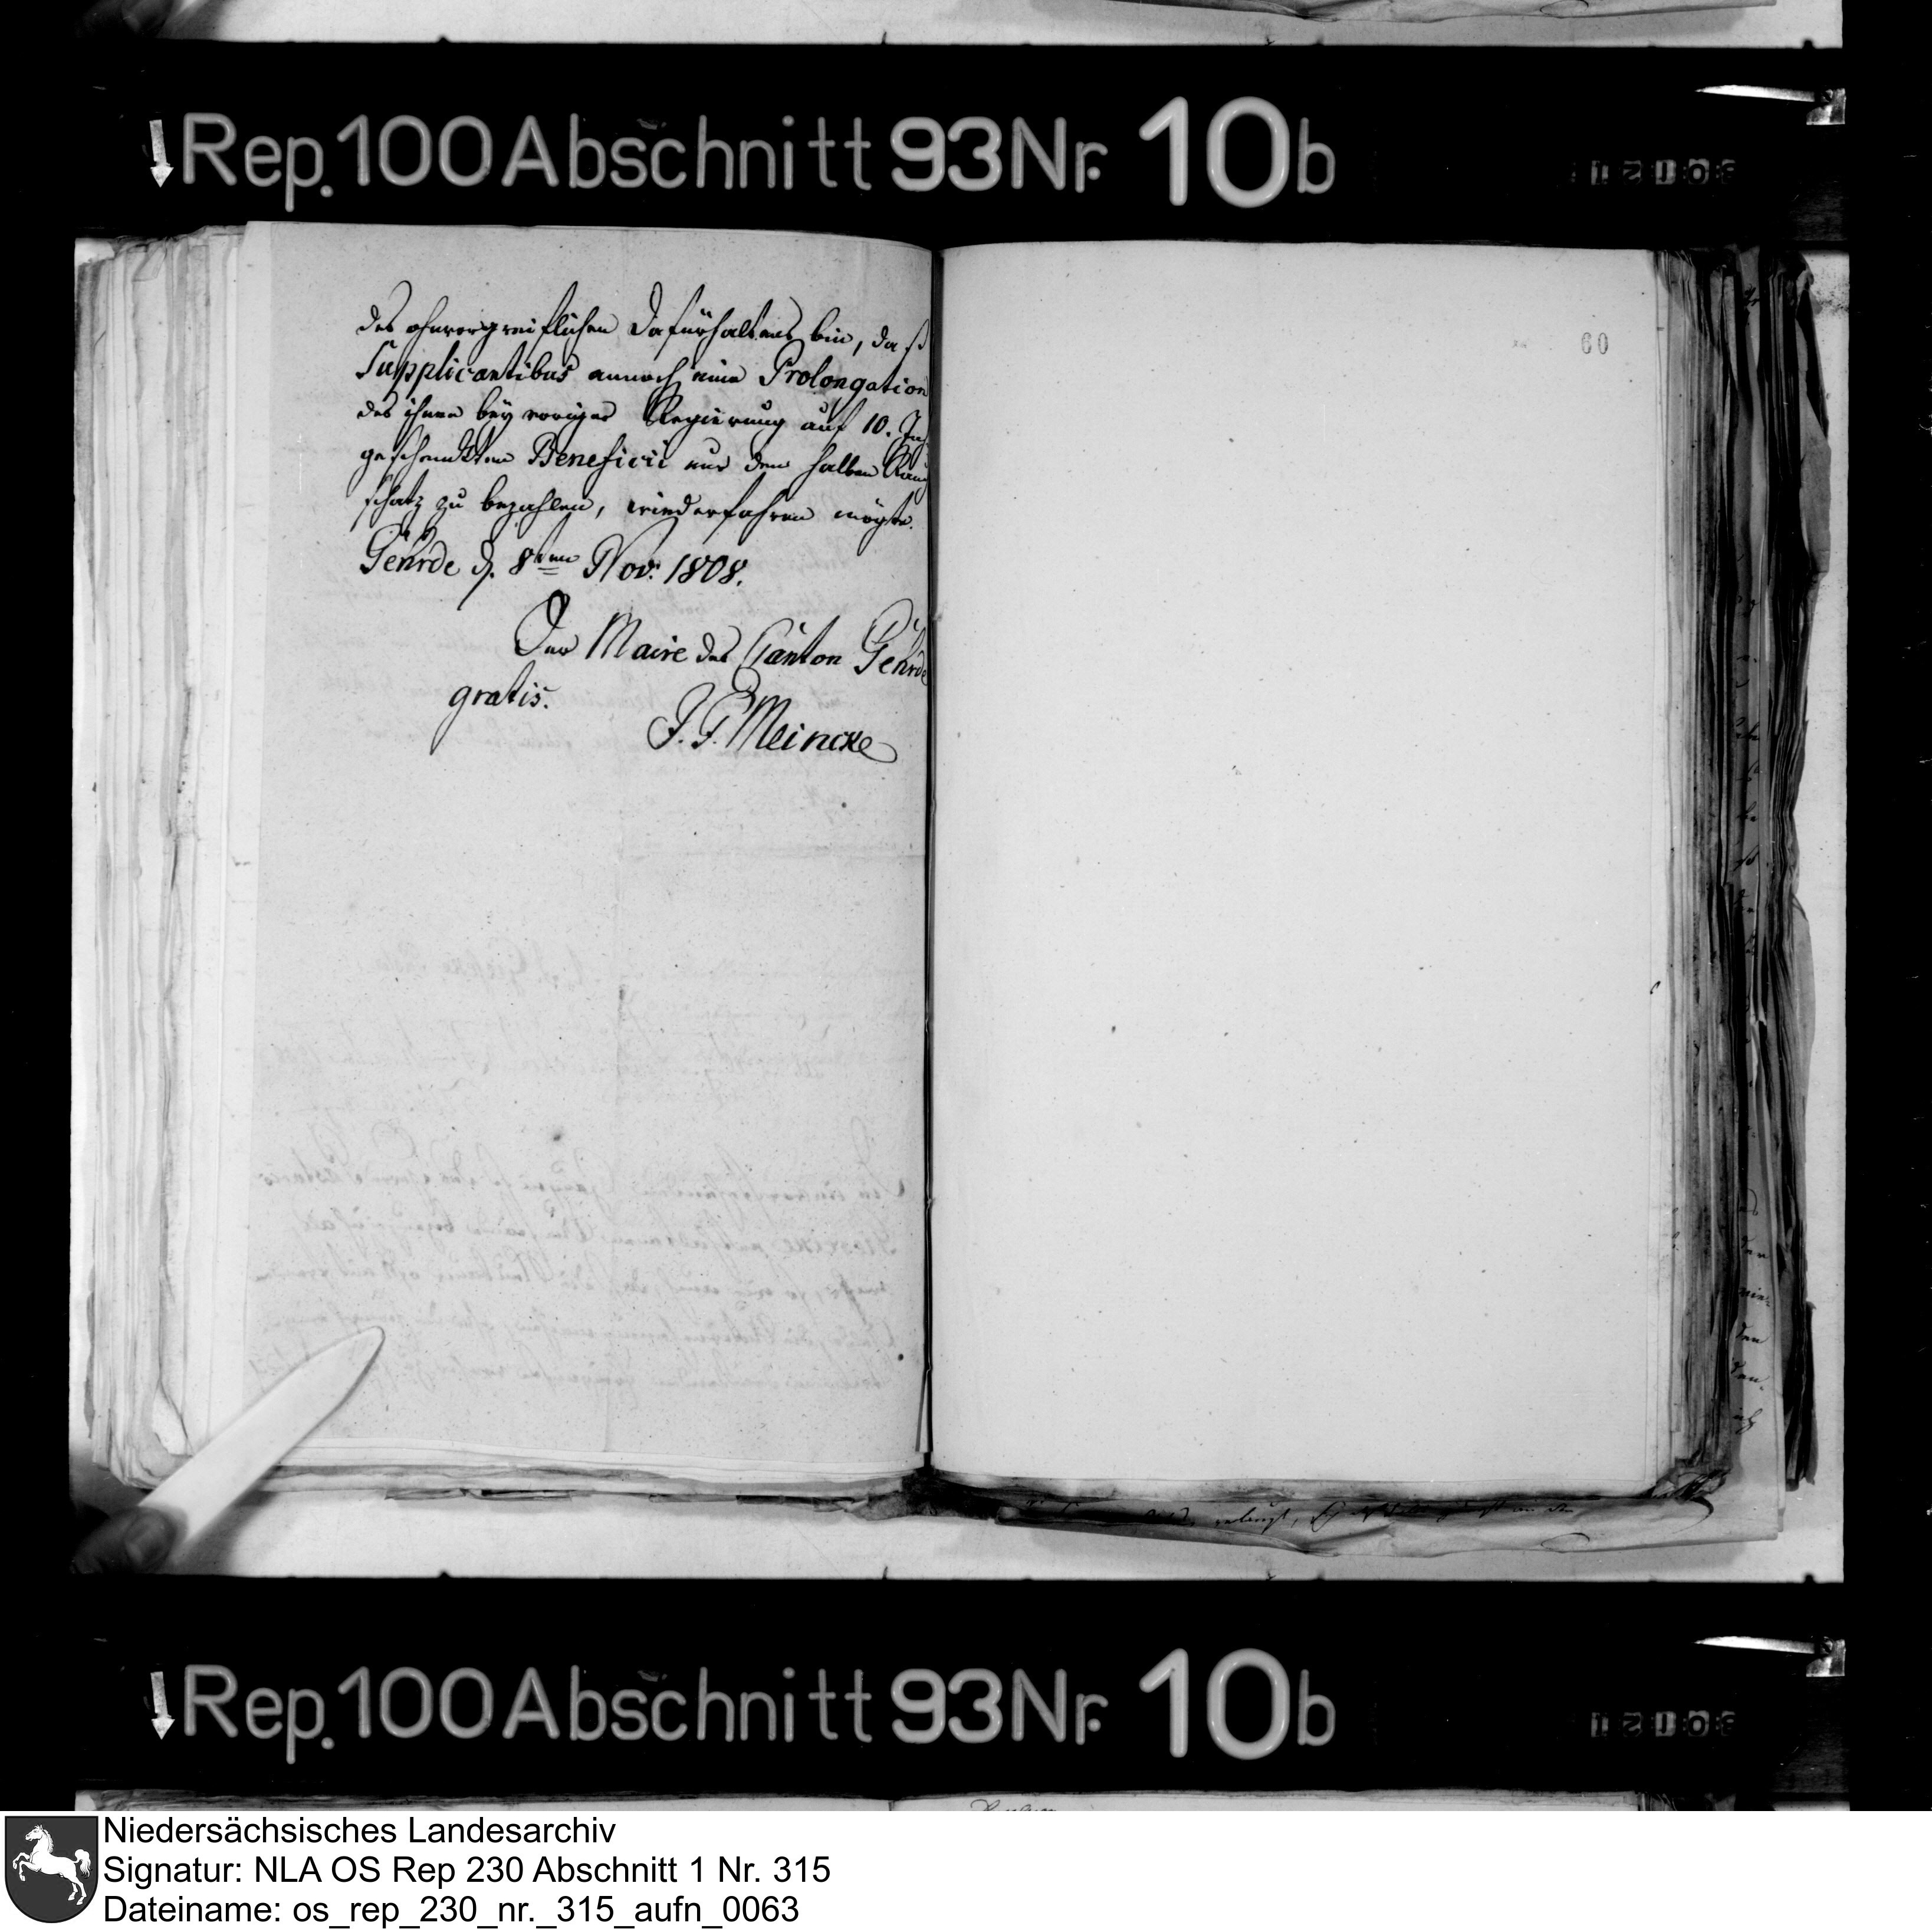 Rep. 100 Abschnitt 93 Nr. 10b
des ohnvorgreiflichen Dafürhaltens bin, daß
Supplicantibus annoch eine Prolongation
des ihnen bey voriger Regierung auf 10. Jah
geschenkten Beneficii nur den halben Rauch
schatz zu bezahlen, wiederfahren mögte.
Gehrde d. 8ten Nov: 1808.
Der Maire des Canton Gehrde
gratis.
J. F. Meincke
60
Rep. 100 Abschnitt 93 Nr. 10b
Niedersächsisches Landesarchiv
Signatur: NLA OS Rep 230 Abschnitt 1 Nr. 315
Dateiname: os_rep_230_nr._315_aufn_0063